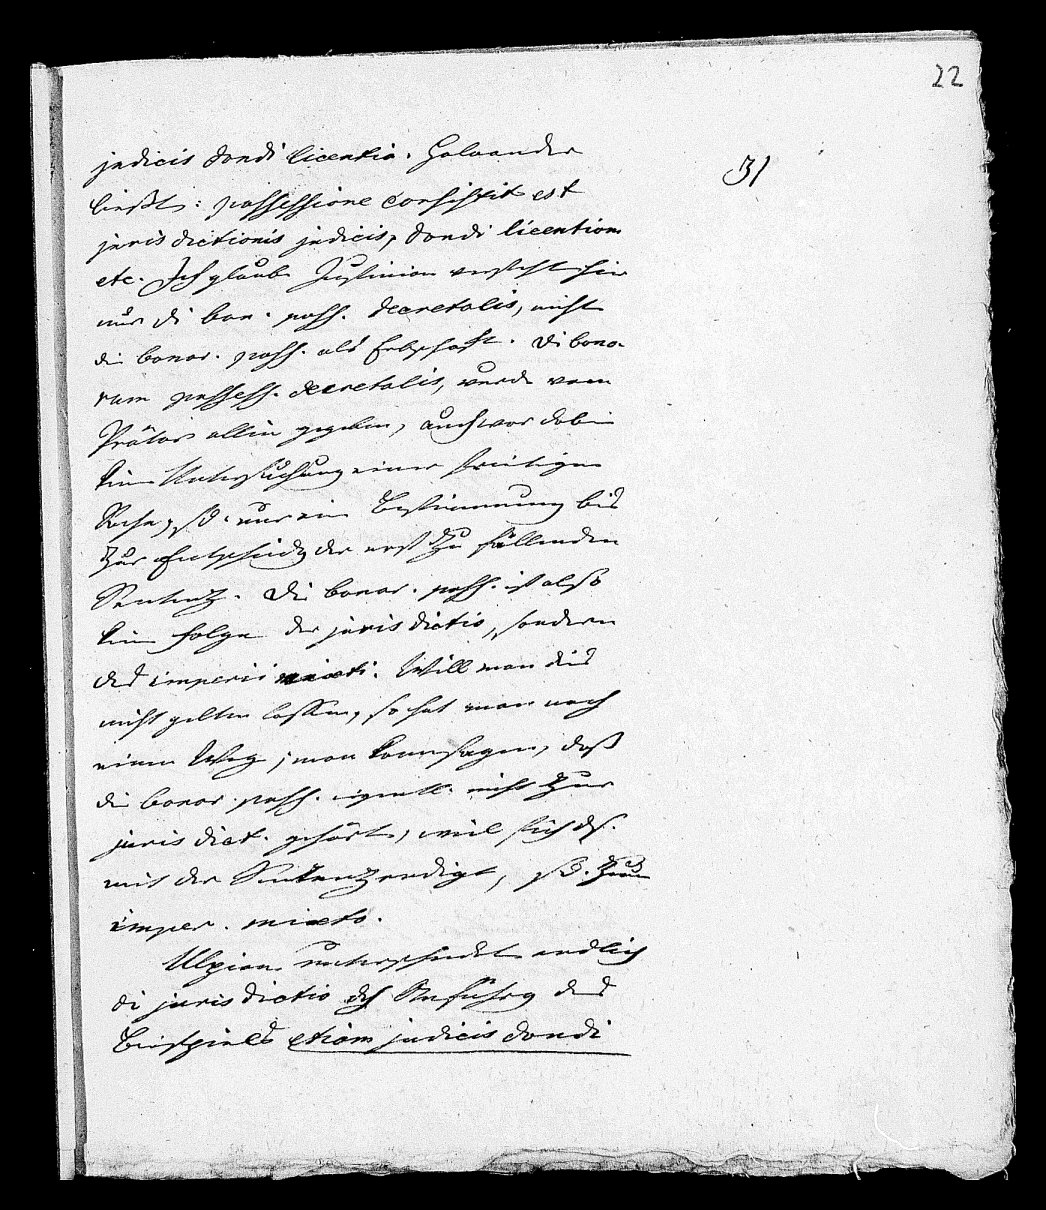 22
31
judicis dandi licentia. Haloander
ließt: possessione consistit est
juris dictionis judicis, dandi licentiam
etc. Ich glaube Justinian versteht hier
nur di bon. poss. decretalis, nicht
die bonor. poss. als Erbschaft. Di bono-
rum possess. decretalis, wurde vom
Prätor allein gegeben, auch war dabei
keine Untersuchung einer streitigen
Sache, sd. nur eine Bestimmung bis
zur Entscheidg der erst zu fällenden
Sentenz. Die bonor. poss. ist also
keine Folge der juris dictio, sondern
des imperii mixti. Will man dies
nicht gelten lassen, so hat man noch
einen Weg; man kann sagen, daß
die bonor. poss. eigentl. nicht zur
juris dict. gehört, weil sich ds.
mit der Sentenz endigt, sd. zum
imper. mixto.
Ulpian unterscheidet endlich
di juris dictio dch Anführg des
Beispiels etiam judicis dandi